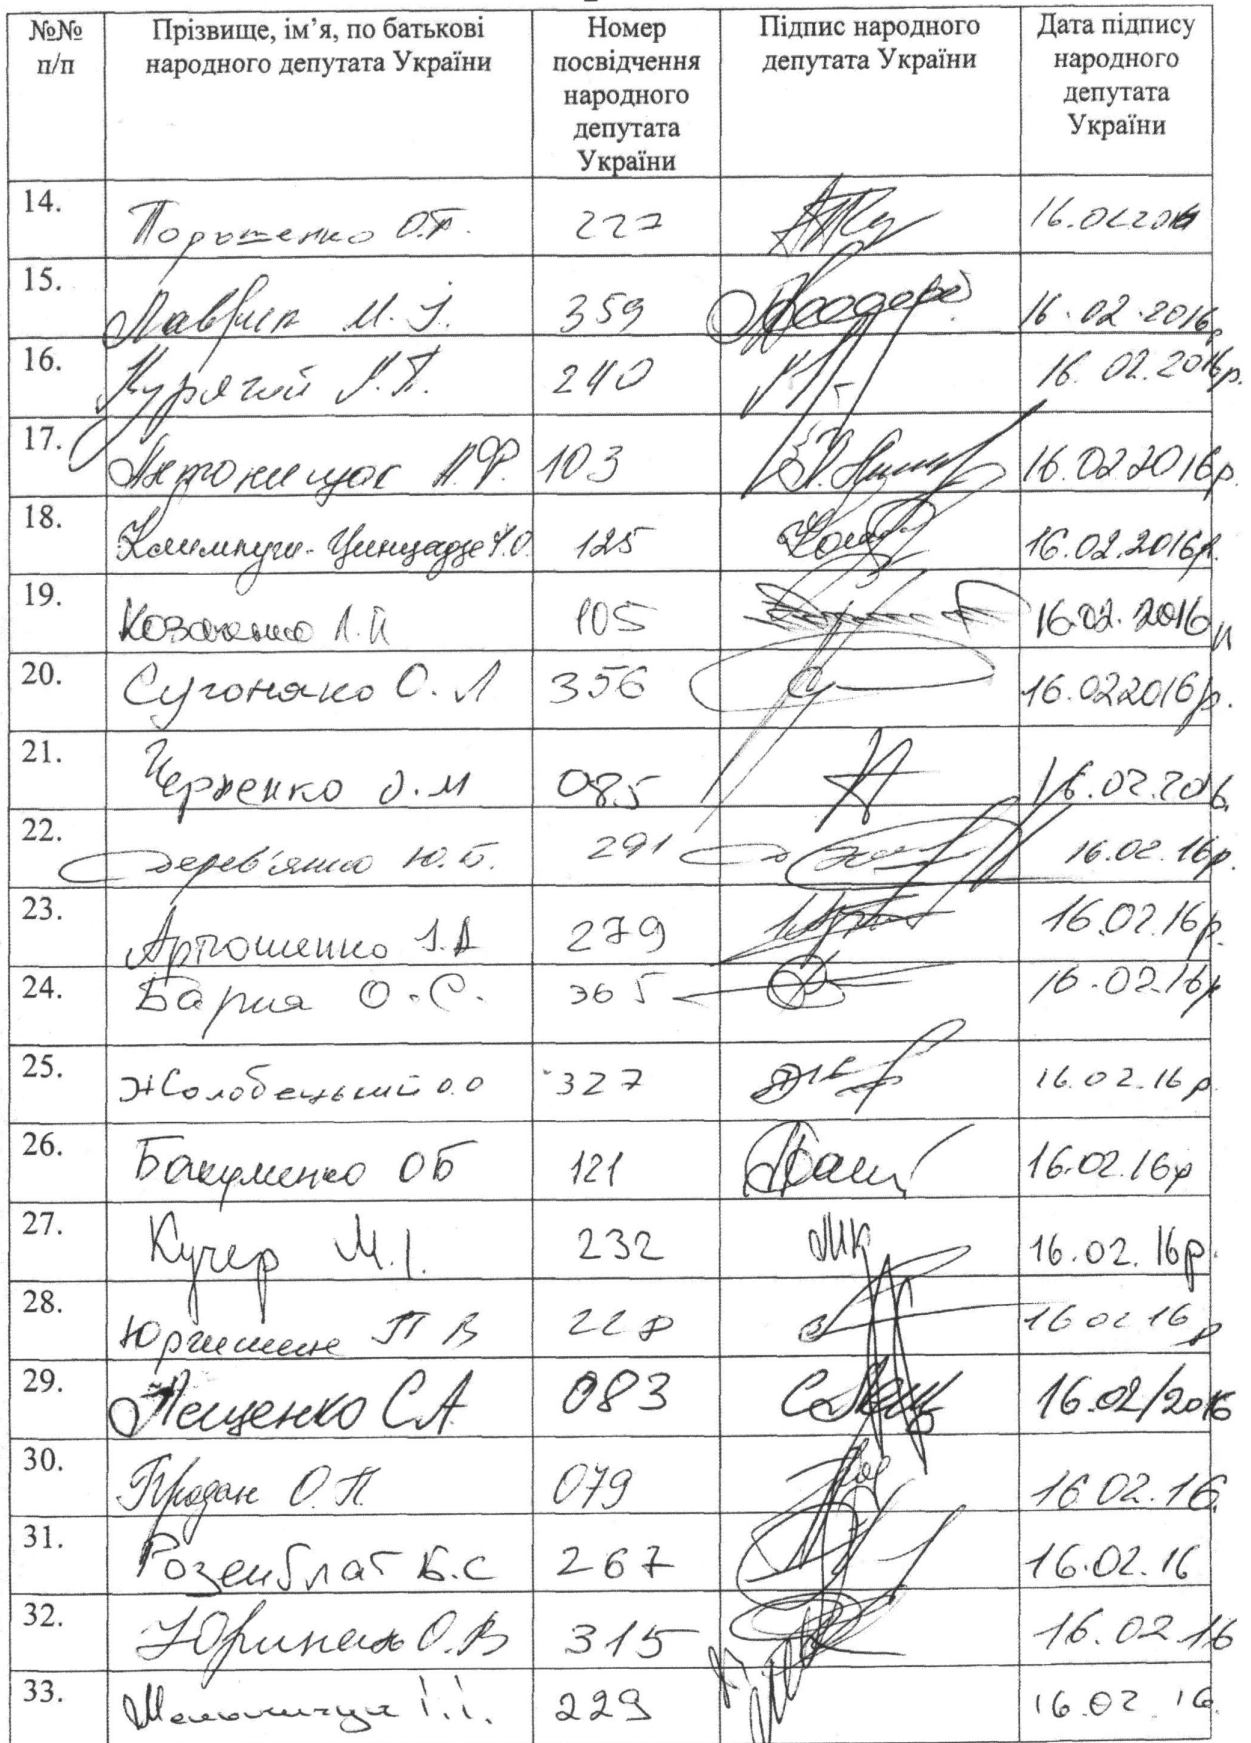 №№ п/п
Прізвище, ім’я, по батькові народного депутата України
Номер посвідчення народного депутата України
Підпис народного депутата України
Дата підпису народного депутата України
14. Порошенко О.П. 227 16.02.2016
15. Лаврик М.І. 359 16.02.2016р
16. Курячий М.П. 240 16.02.2016р.
17. Антонищак А.Ф. 103 16.02.2016р.
18. Климпуш-Цинцадзе І.О. 125 16.02.2016р.
19. Козаченко Л.П 105 16.02.2016р
20. Сугоняко О.Л 356 16.02.2016р.
21. Черненко О.М 085 16.02.2016.
22. Дерев'янко Ю.Б. 291 16.02.16р.
23. Артюшенко І.А 279 16.02.16р.
24. Барна О.С. 365 16.02.16р
25. Жолобецький О.О 327 16.02.16р
26. Бакуменко ОБ 121 16.02.16р
27. Кучер М.І. 232 МК 16.02.16р.
28. Юринець 228 16.02.16р
29. Лещенко С.А 083 16.02/2016
30. Продан О.П. 079 16.02.16.
31. Розенблат Б.С 267 16.02.16
32. Юринець О.В 315 16.02.16
33. Мельничук І.І. 229 16.02.16.